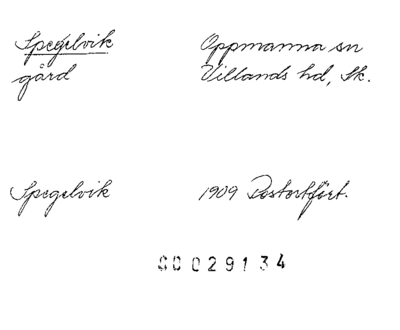 Spegelvik Oppmanna sn
gård Villands hd, Sk.
Spegelvik 1909 Postortfört.
0029134